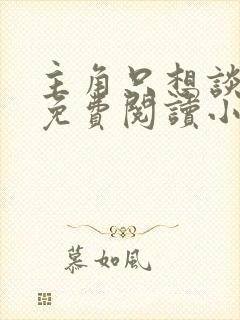 主角只想談
免費閱讀小
慕如風